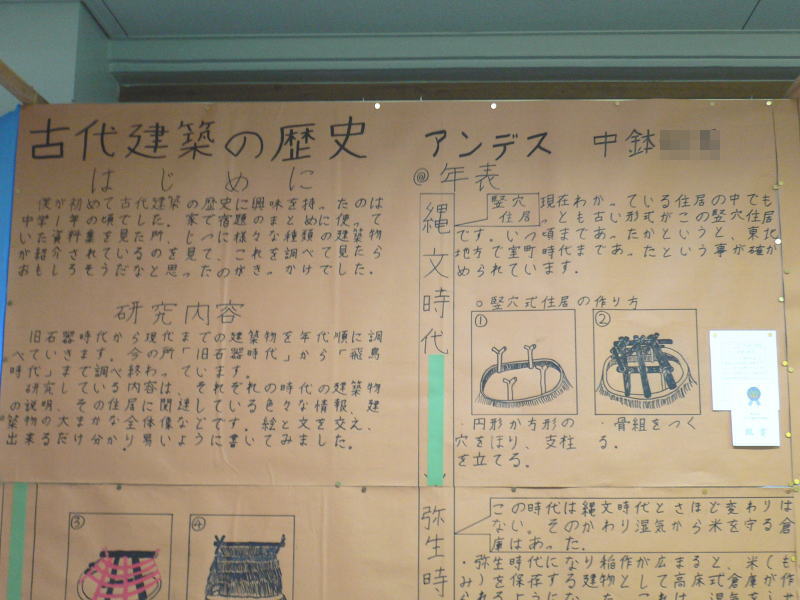 古代建築の歴史
アンデス 中鉢
はじめに
僕が初めて古代建築の歴史に興味を持ったのは
中学1年の頃でした。家で宿題のまとめに使って
いた資料集を見た所、じつに様々な種類の建築物
が紹介されているのを見て、これを調べて見たら
おもしろそうだなと思ったのがきっかけでした。
研究内容
旧石器時代から現代までの建築物を年代順に調
べていきます。今の所「旧石器時代」から「飛鳥
時代」まで調べ終わっています。
研究している内容は、それぞれの時代の建築物
の説明、その住居に関連している色々な情報、建
築物の大まかな全体像などです。絵と文を交え、
出来るだけ分かり易いように書いてみました。
③
④
@年表
縄文時代
竪穴
住居
現在わかっている住居の中でも
っとも古い形式がこの竪穴住居
です。いつ頃まであったかというと、東北
地方で室町時代まであったという事が確か
められています。
○竪穴式住居の作り方
①
②
・円形か方形の
穴をほり、支柱
を立てる。
・骨組をつく
る。
弥生時
この時代は縄文時代とさほど変わりは
ない。そのかわり湿気から米を守る倉
庫はあった。
・弥生時代になり稲作が広まると、米(も
み)を保存する建物として高床式倉庫が作